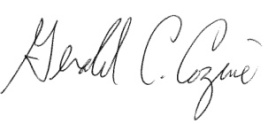 Gerald C. Cozine